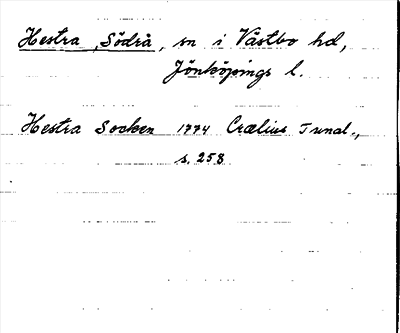 Hestra, Södra, sn i Västbo hd,
Jönköpings l.
Hestra Socken 1774 Crælius Tunal.,
s. 258